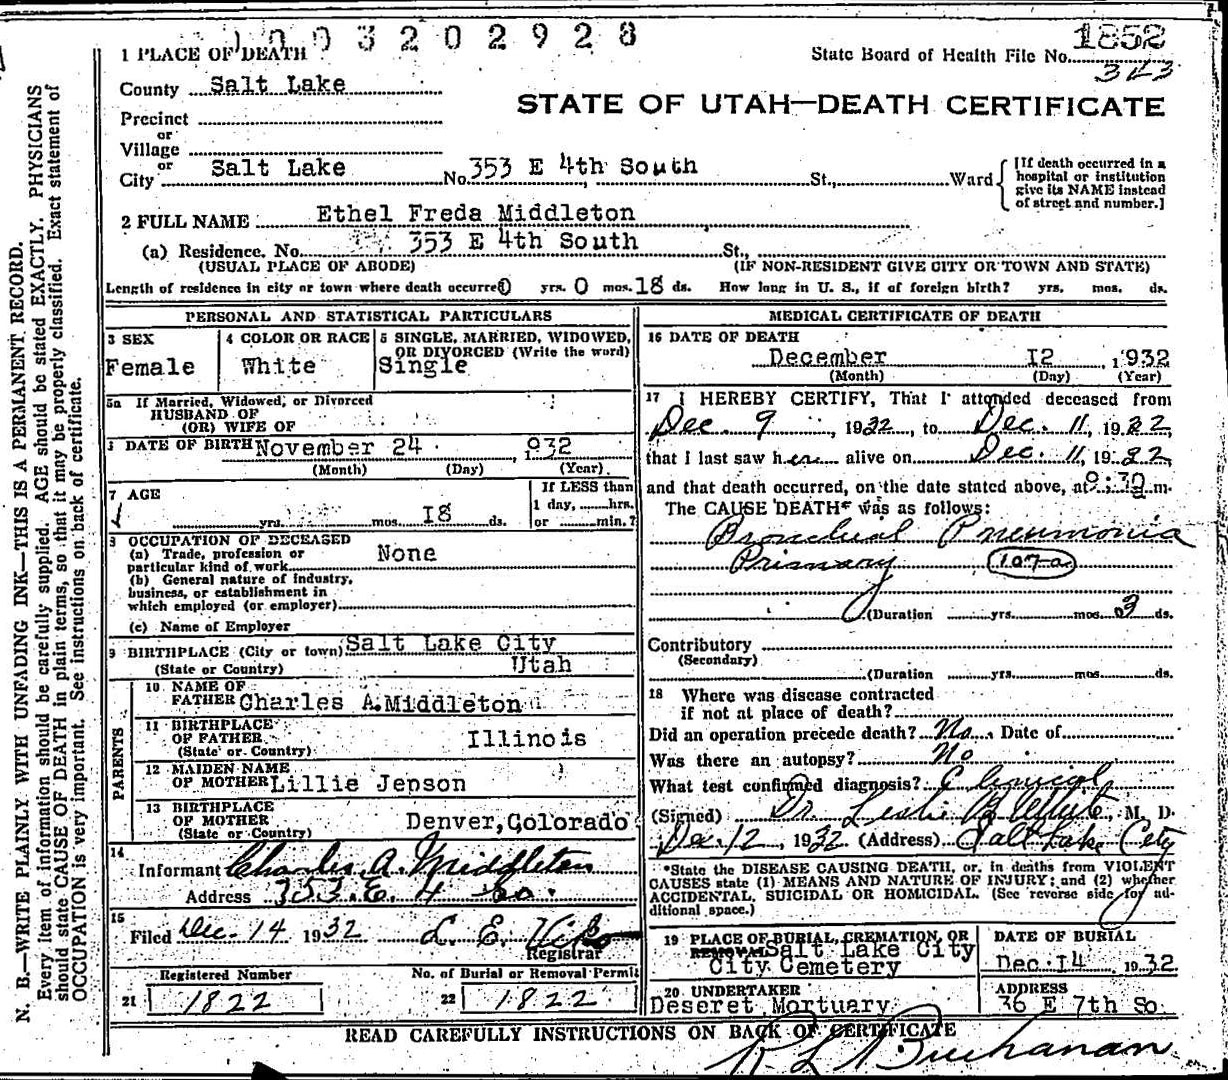 1003202928
1 PLACE OF DEATH
State Board of Health File No. 1852
343
County Salt Lake
STATE OF UTAH—DEATH CERTIFICATE
Precinct
or
Village
or
City Salt Lake No. 353 E 4th South St., Ward
[If death occurred in a
hospital or institution
give its NAME instead
of street and number.]
2 FULL NAME Ethel Freda Middleton
(a) Residence. No. 353 E 4th South St.,
(USUAL PLACE OF ABODE) (IF NON-RESIDENT GIVE CITY OR TOWN AND STATE)
Length of residence in city or town where death occurred 0 yrs. 0 mos. 18 ds. How long in U. S., if of foreign birth? yrs. mos. ds.
PERSONAL AND STATISTICAL PARTICULARS
3 SEX
Female
4 COLOR OR RACE
White
5 SINGLE, MARRIED, WIDOWED,
OR DIVORCED (Write the word)
Single
5a If Married, Widowed, or Divorced
HUSBAND OF
(OR) WIFE OF
DATE OF BIRTH November 24 1932
(Month) (Day) (Year)
7 AGE
yrs. mos. 18 ds.
If LESS than
1 day, hrs.
or min.?
8 OCCUPATION OF DECEASED
(a) Trade, profession or
particular kind of work None
(b) General nature of industry,
business, or establishment in
which employed (or employer)
(c) Name of Employer
9 BIRTHPLACE (City or town) Salt Lake City
(State or Country) Utah
PARENTS
10 NAME OF
FATHER Charles A. Middleton
11 BIRTHPLACE
OF FATHER
(State or Country) Illinois
12 MAIDEN NAME
OF MOTHER Lillie Jepson
13 BIRTHPLACE
OF MOTHER
(State or Country) Denver, Colorado
14
Informant Charles A. Middleton
Address 353. E. 4 So.
15
Filed Dec. 14 1932 L. E.
Registrar
Registered Number No. of Burial or Removal Permit
21 1822 22 1822
MEDICAL CERTIFICATE OF DEATH
16 DATE OF DEATH
December 12, 1932
(Month) (Day) (Year)
17 I HEREBY CERTIFY, That I attended deceased from
Dec. 9, 1932, to Dec. 11, 1932,
that I last saw her alive on Dec. 11, 1932,
and that death occurred, on the date stated above, at 9:30 m.
The CAUSE DEATH* was as follows:
Bronchial Pneumonia
Primary 107-a
(Duration yrs. mos. 3 ds.
Contributory
(Secondary)
(Duration yrs. mos. ds.
18 Where was disease contracted
if not at place of death?
Did an operation precede death? No. Date of
Was there an autopsy? No
What test confirmed diagnosis? Clinical
(Signed) Dr. Leslie B. White, M. D.
Dec. 12, 1932 (Address) Salt Lake City
*State the DISEASE CAUSING DEATH, or, in deaths from VIOLENT
CAUSES state (1) MEANS AND NATURE OF INJURY; and (2) whether
ACCIDENTAL, SUICIDAL OR HOMICIDAL. (See reverse side for ad-
ditional space.)
19 PLACE OF BURIAL, CREMATION, OR
REMOVAL Salt Lake City
City Cemetery
DATE OF BURIAL
Dec. 14 1932
20 UNDERTAKER
Deseret Mortuary
ADDRESS
36 E 7th So.
READ CAREFULLY INSTRUCTIONS ON BACK OF CERTIFICATE
Buchanan
N. B.—WRITE PLAINLY WITH UNFADING INK—THIS IS A PERMANENT RECORD.
Every item of information should be carefully supplied. AGE should be stated EXACTLY. PHYSICIANS
should state CAUSE OF DEATH in plain terms, so that it may be properly classified. Exact statement of
OCCUPATION is very important. See instructions on back of certificate.